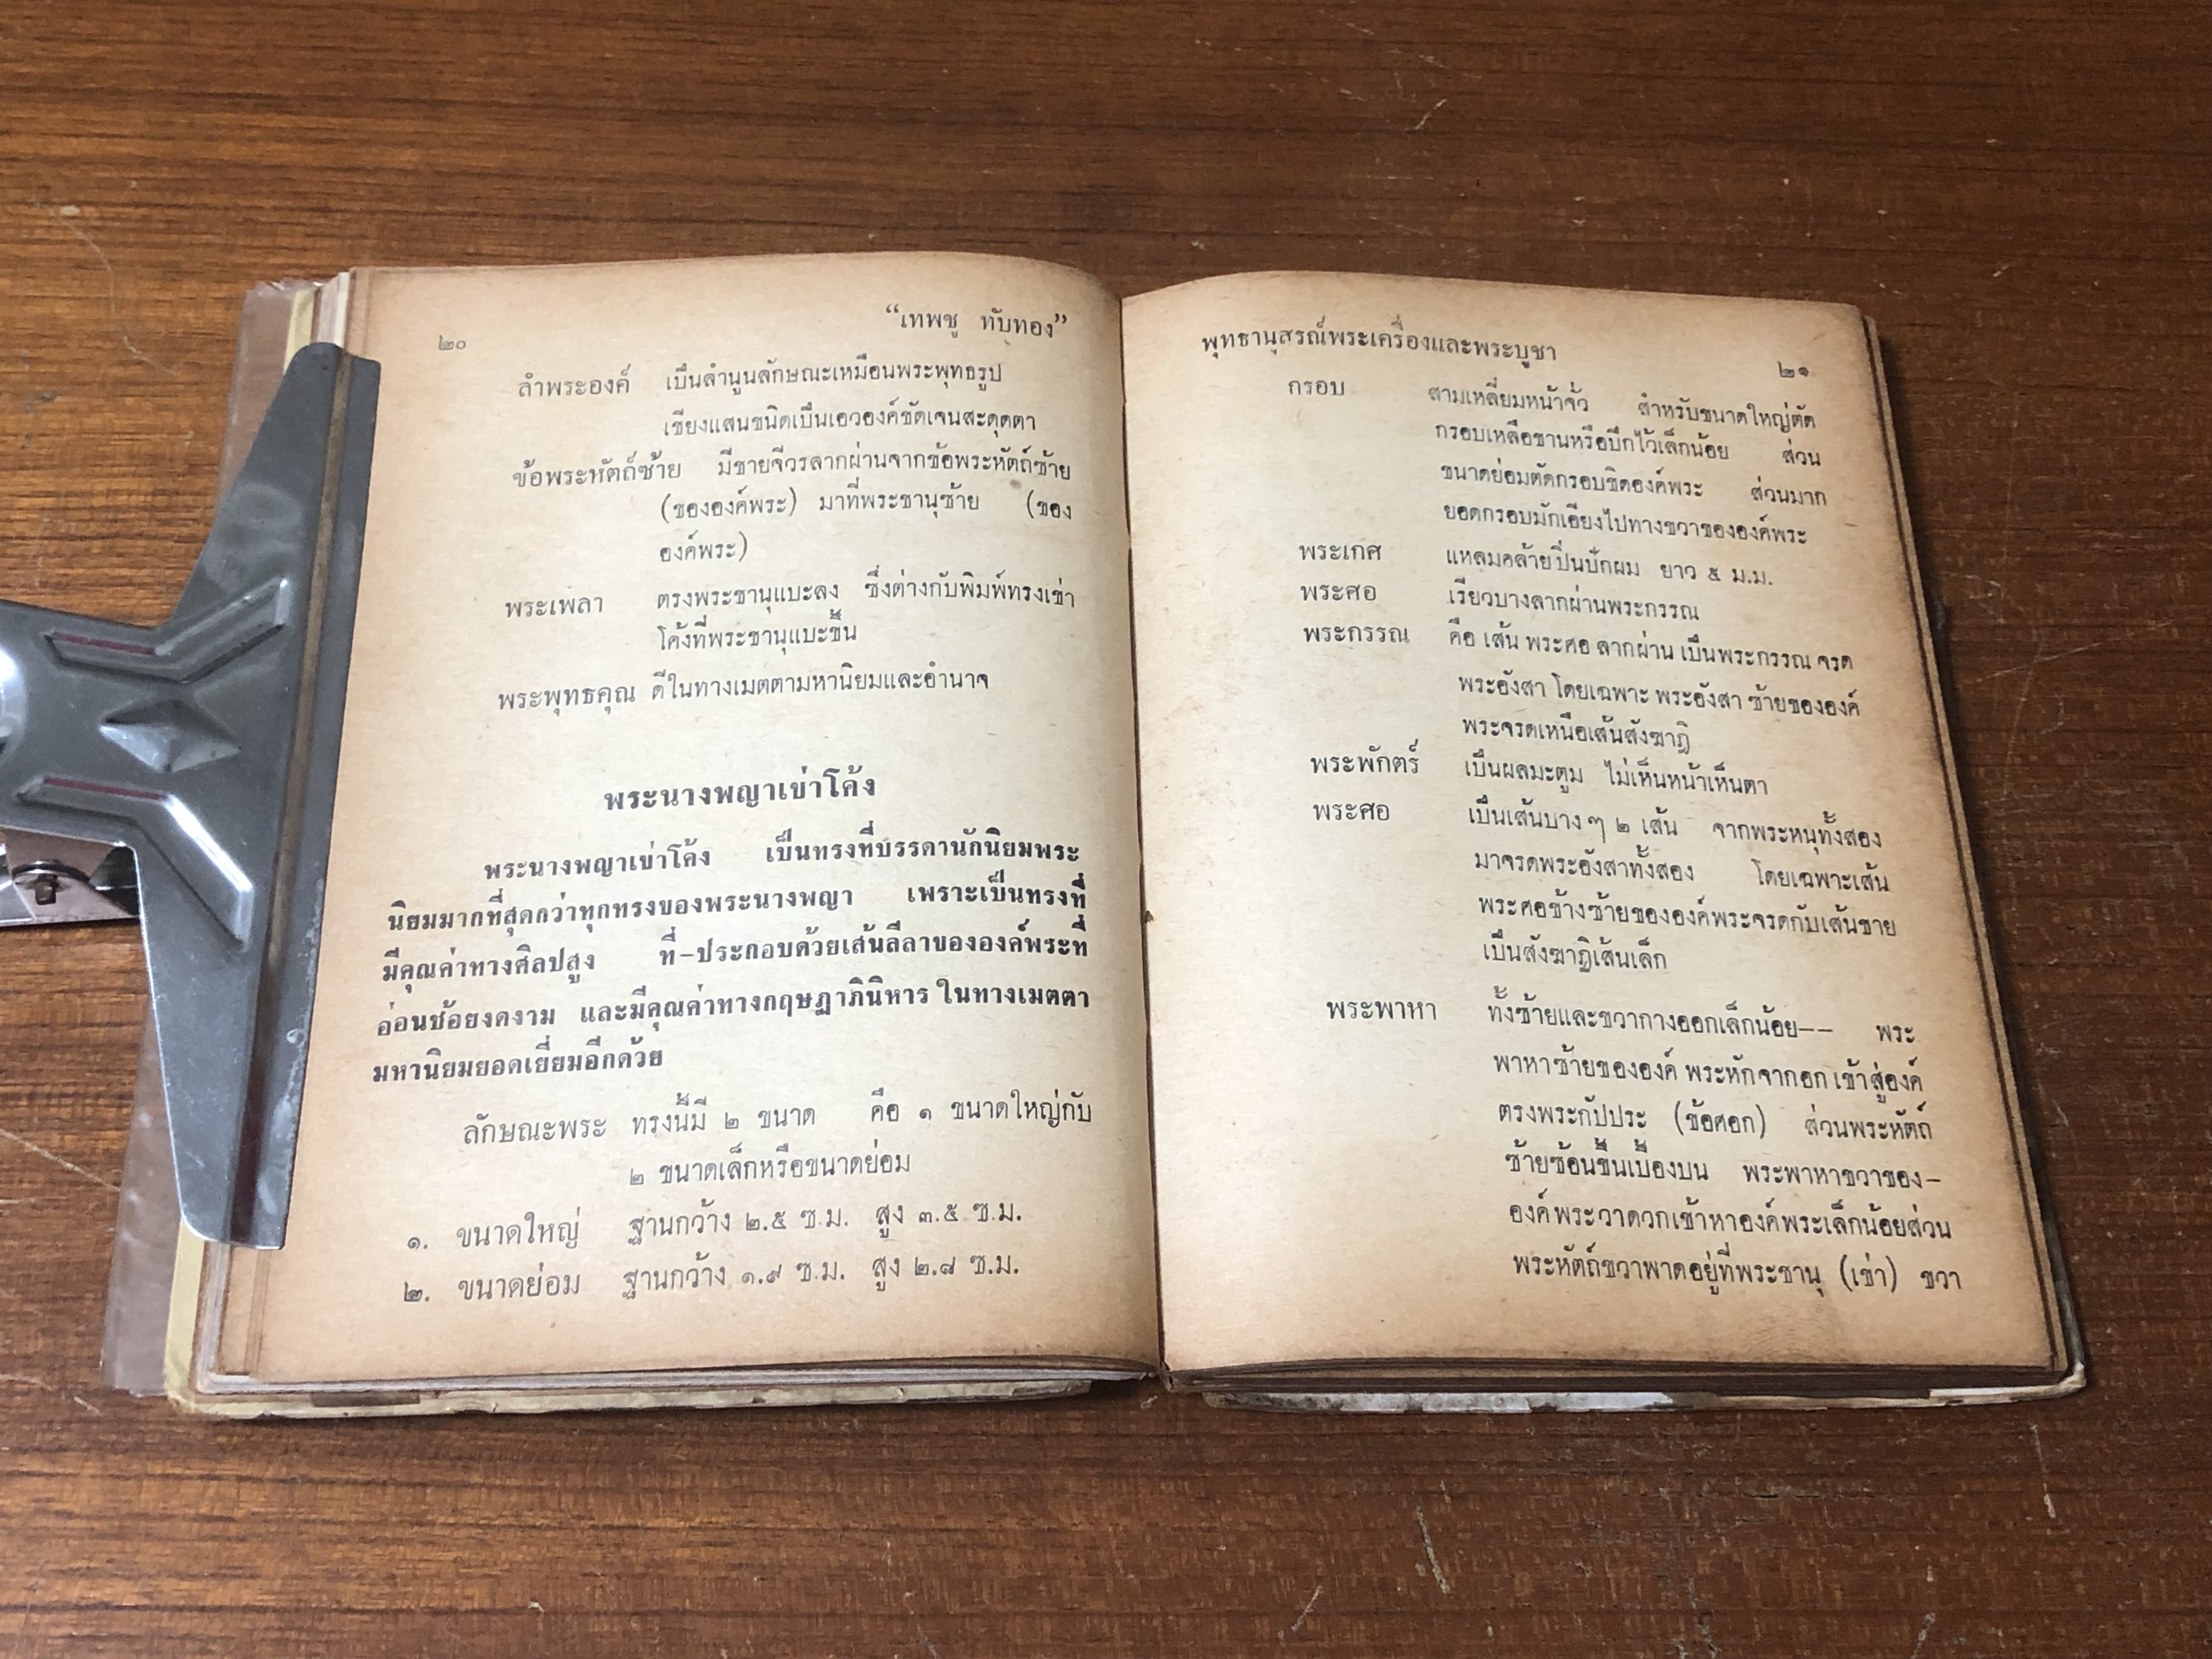 ๒๐
“เทพชู ทับทอง”
ลำพระองค์ เป็นลำนูนลักษณะเหมือนพระพุทธรูป
เชียงแสนชนิดเป็นเอวองค์ชัดเจนสะดุดตา
ข้อพระหัตถ์ซ้าย มีชายจีวรลากผ่านจากข้อพระหัตถ์ซ้าย
(ขององค์พระ) มาที่พระชานุซ้าย (ของ
องค์พระ)
พระเพลา ตรงพระชานุแบะลง ซึ่งต่างกับพิมพ์ทรงเข่า
โค้งที่พระชานุแบะขึ้น
พระพุทธคุณ ดีในทางเมตตามหานิยมและอำนาจ
พระนางพญาเข่าโค้ง
พระนางพญาเข่าโค้ง เป็นทรงที่บรรดานักนิยมพระ
นิยมมากที่สุดกว่าทุกทรงของพระนางพญา เพราะเป็นทรงที่
มีคุณค่าทางศิลปสูง ที่-ประกอบด้วยเส้นลีลาขององค์พระที่
อ่อนช้อยงดงาม และมีคุณค่าทางกฤษฎาภินิหาร ในทางเมตตา
มหานิยมยอดเยี่ยมอีกด้วย
ลักษณะพระ ทรงนี้มี ๒ ขนาด คือ ๑ ขนาดใหญ่กับ
๒ ขนาดเล็กหรือขนาดย่อม
๑. ขนาดใหญ่ ฐานกว้าง ๒.๕ ซ.ม. สูง ๓.๕ ซ.ม.
๒. ขนาดย่อม ฐานกว้าง ๑.๙ ซ.ม. สูง ๒.๘ ซ.ม.
พุทธานุสรณ์พระเครื่องและพระบูชา
๒๑
กรอบ สามเหลี่ยมหน้าจั่ว สำหรับขนาดใหญ่ตัด
กรอบเหลือชานหรือปีกไว้เล็กน้อย ส่วน
ขนาดย่อมตัดกรอบชิดองค์พระ ส่วนมาก
ยอดกรอบมักเอียงไปทางขวาขององค์พระ
พระเกศ แหลมคล้ายปิ่นปักผม ยาว ๕ ม.ม.
พระศอ เรียวบางลากผ่านพระกรรณ
พระกรรณ คือ เส้น พระศอ ลากผ่าน เป็นพระกรรณ จรด
พระอังสา โดยเฉพาะ พระอังสา ซ้ายขององค์
พระจรดเหนือเส้นสังฆาฏิ
พระพักตร์ เป็นผลมะตูม ไม่เห็นหน้าเห็นตา
พระศอ เป็นเส้นบาง ๆ ๒ เส้น จากพระหนุทั้งสอง
มาจรดพระอังสาทั้งสอง โดยเฉพาะเส้น
พระศอข้างซ้ายขององค์พระจรดกับเส้นชาย
เป็นสังฆาฏิเส้นเล็ก
พระพาหา ทั้งซ้ายและขวากางออกเล็กน้อย-- พระ
พาหาซ้ายขององค์ พระหักจากอก เข้าสู่องค์
ตรงพระกัปประ (ข้อศอก) ส่วนพระหัตถ์
ซ้ายช้อนขึ้นเบื้องบน พระพาหาขวาของ-
องค์พระวาดวกเข้าหาองค์พระเล็กน้อยส่วน
พระหัตถ์ขวาพาดอยู่ที่พระชานุ (เข่า) ขวา